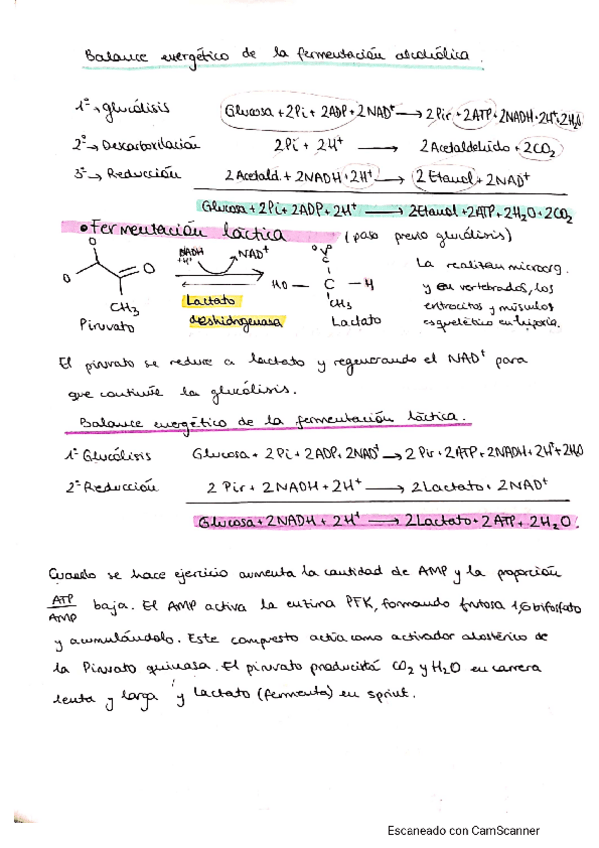 Balance energético de la fermentación alcohólica.
1º → glucólisis Glucosa + 2Pi + 2ADP + 2NAD⁺ → 2Pir + 2ATP + 2NADH + 2H⁺ + 2H₂O
2º → Descarboxilación 2Pi + 2H⁺ → 2Acetaldehído + 2CO₂
3º → Reducción 2Acetald. + 2NADH + 2H⁺ → 2Etanol + 2NAD⁺
Glucosa + 2Pi + 2ADP + 2H⁺ → 2Etanol + 2ATP + 2H₂O + 2CO₂
• Fermentación láctica (paso previo glucólisis)
O O
CH₃
Piruvato
NADH +H⁺ NAD⁺
Lactato deshidrogenasa
HO — C — H
CH₃
Lactato
La realizan microorg.
y en vertebrados, los
eritrocitos y músculos
esquelético en hipoxia.
El piruvato se reduce a lactato y regenerando el NAD⁺ para
que continúe la glucólisis.
Balance energético de la fermentación láctica.
1º Glucólisis Glucosa + 2Pi + 2ADP + 2NAD⁺ → 2Pir + 2ATP + 2NADH + 2H⁺ + 2H₂O
2º Reducción 2Pir + 2NADH + 2H⁺ → 2Lactato + 2NAD⁺
Glucosa + 2NADH + 2H⁺ → 2Lactato + 2ATP + 2H₂O.
Cuando se hace ejercicio aumenta la cantidad de AMP y la proporción
ATP/AMP baja. El AMP activa la enzima PFK, formando frutosa 1,6 bifosfato
y acumulándolo. Este compuesto actúa como activador alostérico de
la Piruvato quinasa. El piruvato producirá CO₂ y H₂O en carrera
lenta y larga y Lactato (fermenta) en sprint.
Escaneado con CamScanner